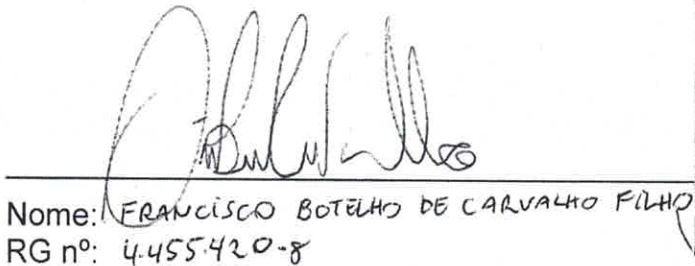 Nome: FRANCISCO BOTELHO DE CARVALHO FILHO
RG nº: 4.455.420-8